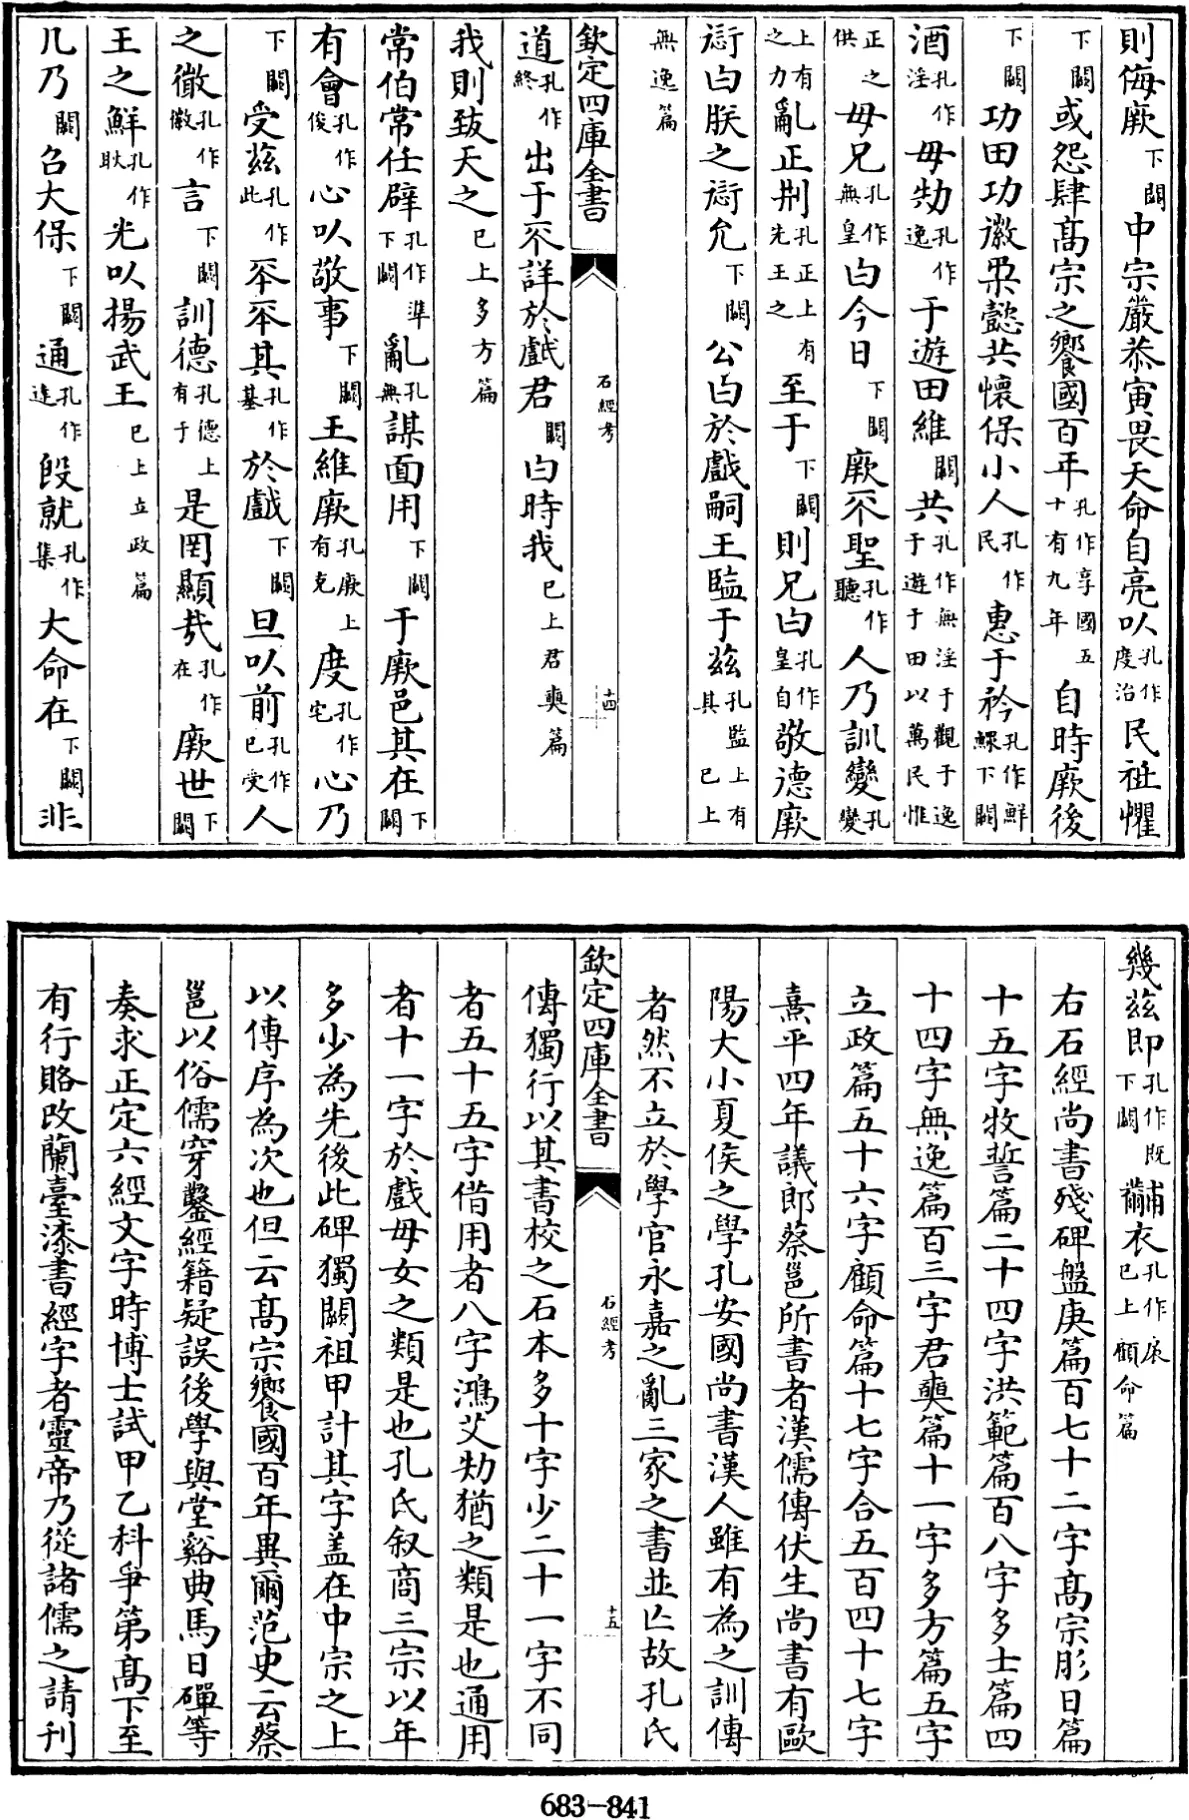 則侮厥下闕中宗嚴恭寅畏天命自亮以孔作度治民祗懼
下闕或怨肆高宗之饗國百年孔作享國五十有九年自時厥後
下闕功田功徽柔懿共懷保小人孔作民惠于矜孔作鮮鰥下闕
酒孔作淫毋劮孔作逸于遊田維闕共孔作無淫于觀于逸于遊于田以萬民惟
正之供毋兄孔作無皇曰今日下闕厥不聖孔作聽人乃訓變孔變
上有之力亂正刑孔正上有先王之至于下闕則兄曰孔作皇自敬德厥
愆曰朕之愆允下闕公曰於戲嗣王監于茲孔監上有其已上
無逸篇
欽定四庫全書
石經考
十四
道孔作終出于不詳於戲君闕曰時我已上君奭篇
我則致天之已上多方篇
常伯常任辟孔作準下闕亂孔無謀面用下闕于厥邑其在下闕
有會孔作俊心以敬事下闕王維厥孔厥上有克度孔作宅心乃
下闕受茲孔作此不不其孔作基於戲下闕旦以前孔作已受人
之微孔作徽言下闕訓德孔德上有于是罔顯哉孔作在厥世下闕
王之鮮孔作耿光以揚武王已上立政篇
几乃闕召大保下闕通孔作達殷就孔作集大命在下闕非
幾茲即孔作既下闕黼衣孔作扆已上顧命篇
右石經尚書殘碑盤庚篇百七十二字高宗肜日篇
十五字牧誓篇二十四字洪範篇百八字多士篇四
十四字無逸篇百三字君奭篇十一字多方篇五字
立政篇五十六字顧命篇十七字合五百四十七字
熹平四年議郎蔡邕所書者漢儒傳伏生尚書有歐
陽大小夏侯之學孔安國尚書漢人雖有為之訓傳
者然不立於學官永嘉之亂三家之書並亡故孔氏
欽定四庫全書
石經考
十五
傳獨行以其書校之石本多十字少二十一字不同
者五十五字借用者八字鴻艾劮猶之類是也通用
者十一字於戲毋女之類是也孔氏叙商三宗以年
多少為先後此碑獨闕祖甲計其字盖在中宗之上
以傳序為次也但云高宗饗國百年異爾范史云蔡
邕以俗儒穿鑿經籍疑誤後學與堂谿典馬日磾等
奏求正定六經文字時博士試甲乙科爭第高下至
有行賂改蘭臺漆書經字者靈帝乃從諸儒之請刊
683-841